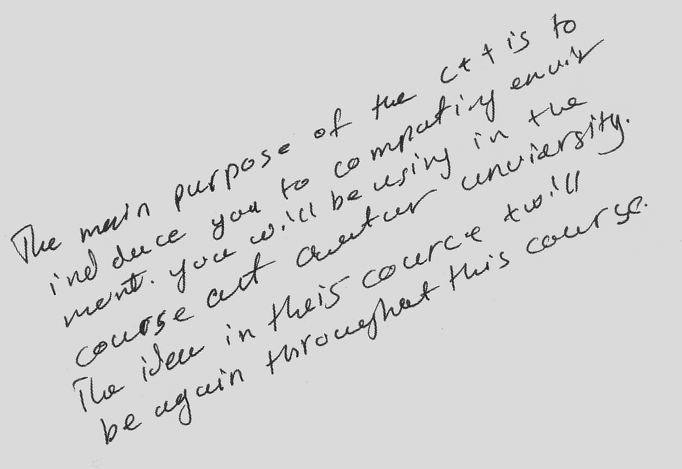 The main purpose of the c++ is to
induce you to computing envir
ment. you will be using in the
course aut unviersity.
The idea in theis cource twill
be again throughat this course.